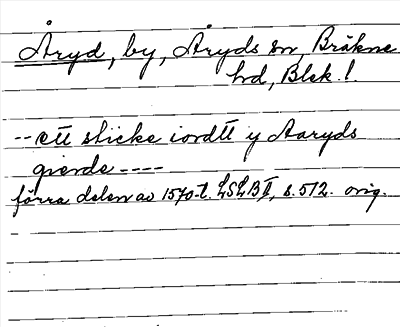 Åryd, by, Åryds sn Bräkne
hrd, Blek. l.
-- ett sticke iordtt y Aaryds
gierde ----
förra delen av 1570-t. LSLB II, s. 512. orig.